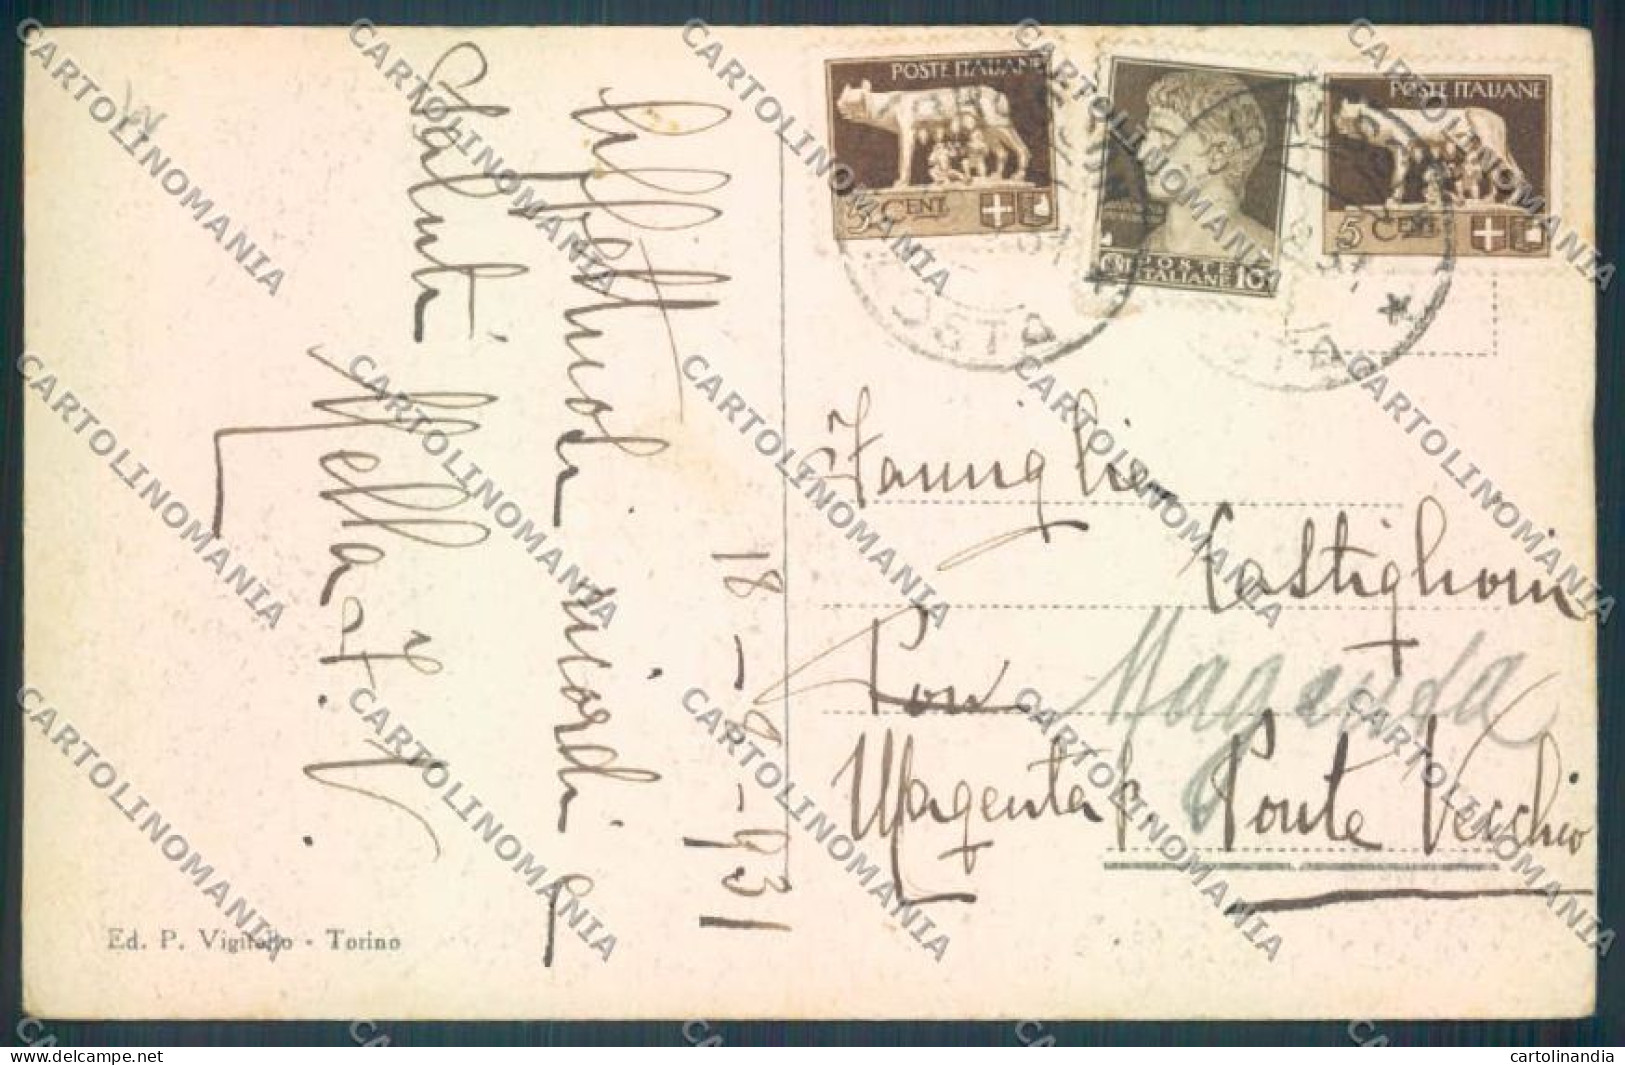 18-8-931
Affettuosi ricordi e
Saluti
POSTE ITALIANE
5 CENT.
POSTE
ITALIANE 10
POSTE ITALIANE
5 CENT.
AOSTA
Famiglia
Castiglioni
Magenta
Magenta p. Ponte Vecchio
Ed. P. Vigitello - Torino
CARTOLINOMANIA
www.delcampe.net
cartolinandia